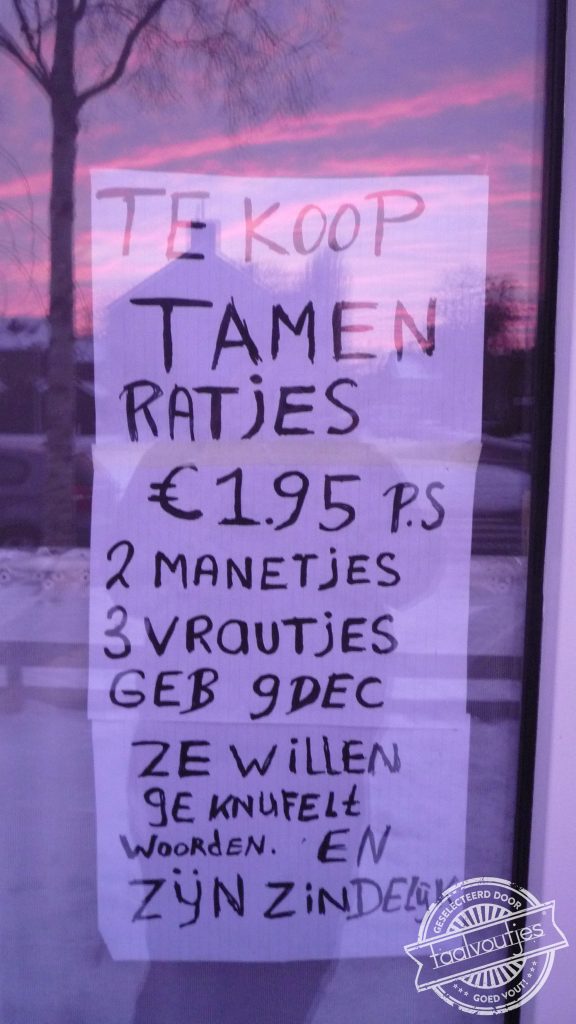 TE KOOP
TAMEN
RATjES
€ 1.95 P.S
2 MANETjES
3 VRaUTjES
GEB 9 DEC
ZE WiLLEN
gE KNUFELt
WOORdEN. EN
ZijN ZiNDELijk
GESELECTEERD DOOR
taalvoutjes
GOED VOUT!